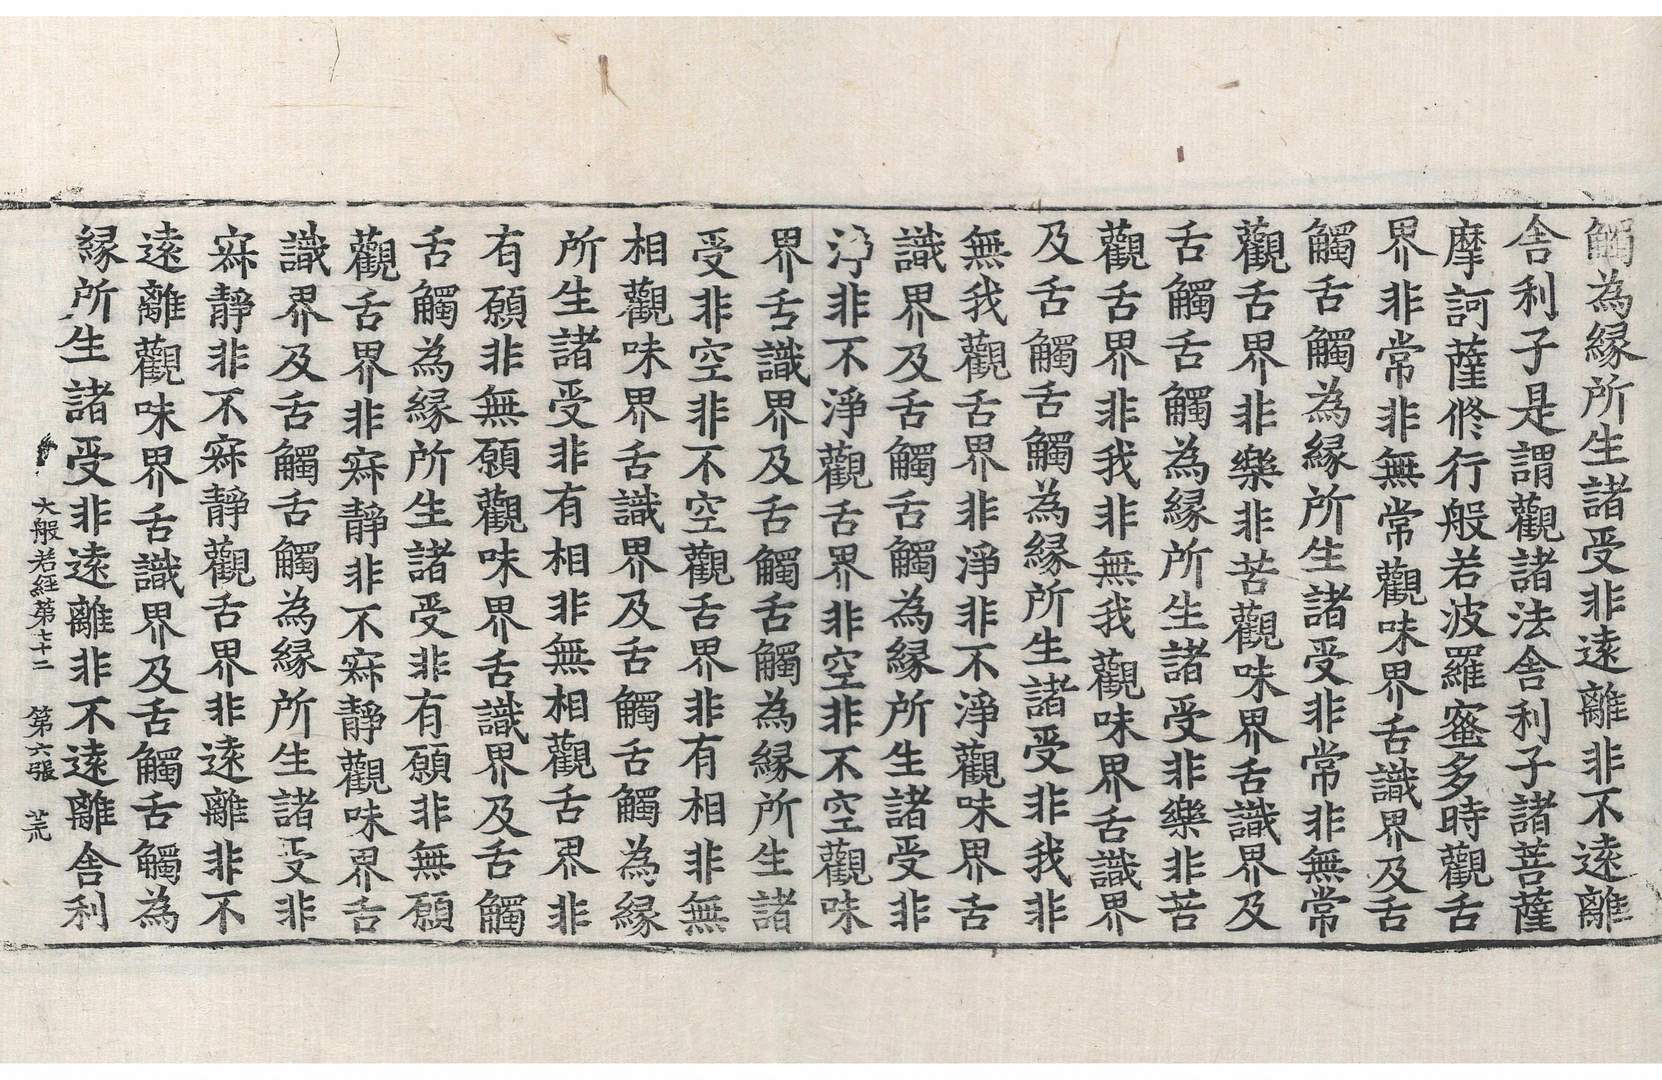 觸為縁所生諸受非逺離非不逺離
舎利子是謂觀諸法舎利子諸菩薩
摩訶薩修行般若波羅蜜多時觀舌
界非常非無常觀味界舌識界及舌
觸舌觸為縁所生諸受非常非無常
觀舌界非樂非苦觀味界舌識界及
舌觸舌觸為縁所生諸受非樂非苦
觀舌界非我非無我觀味界舌識界
及舌觸舌觸為縁所生諸受非我非
無我觀舌界非淨非不淨觀味界舌
識界及舌觸舌觸為縁所生諸受非
淨非不淨觀舌界非空非不空觀味
界舌識界及舌觸舌觸為縁所生諸
受非空非不空觀舌界非有相非無
相觀味界舌識界及舌觸舌觸為縁
所生諸受非有相非無相觀舌界非
有願非無願觀味界舌識界及舌觸
舌觸為縁所生諸受非有願非無願
觀舌界非寂靜非不寂靜觀味界舌
識界及舌觸舌觸為縁所生諸受非
寂靜非不寂靜觀舌界非逺離非不
逺離觀味界舌識界及舌觸舌觸為
縁所生諸受非逺離非不逺離舎利
大般若經第七十二 第六張 荒